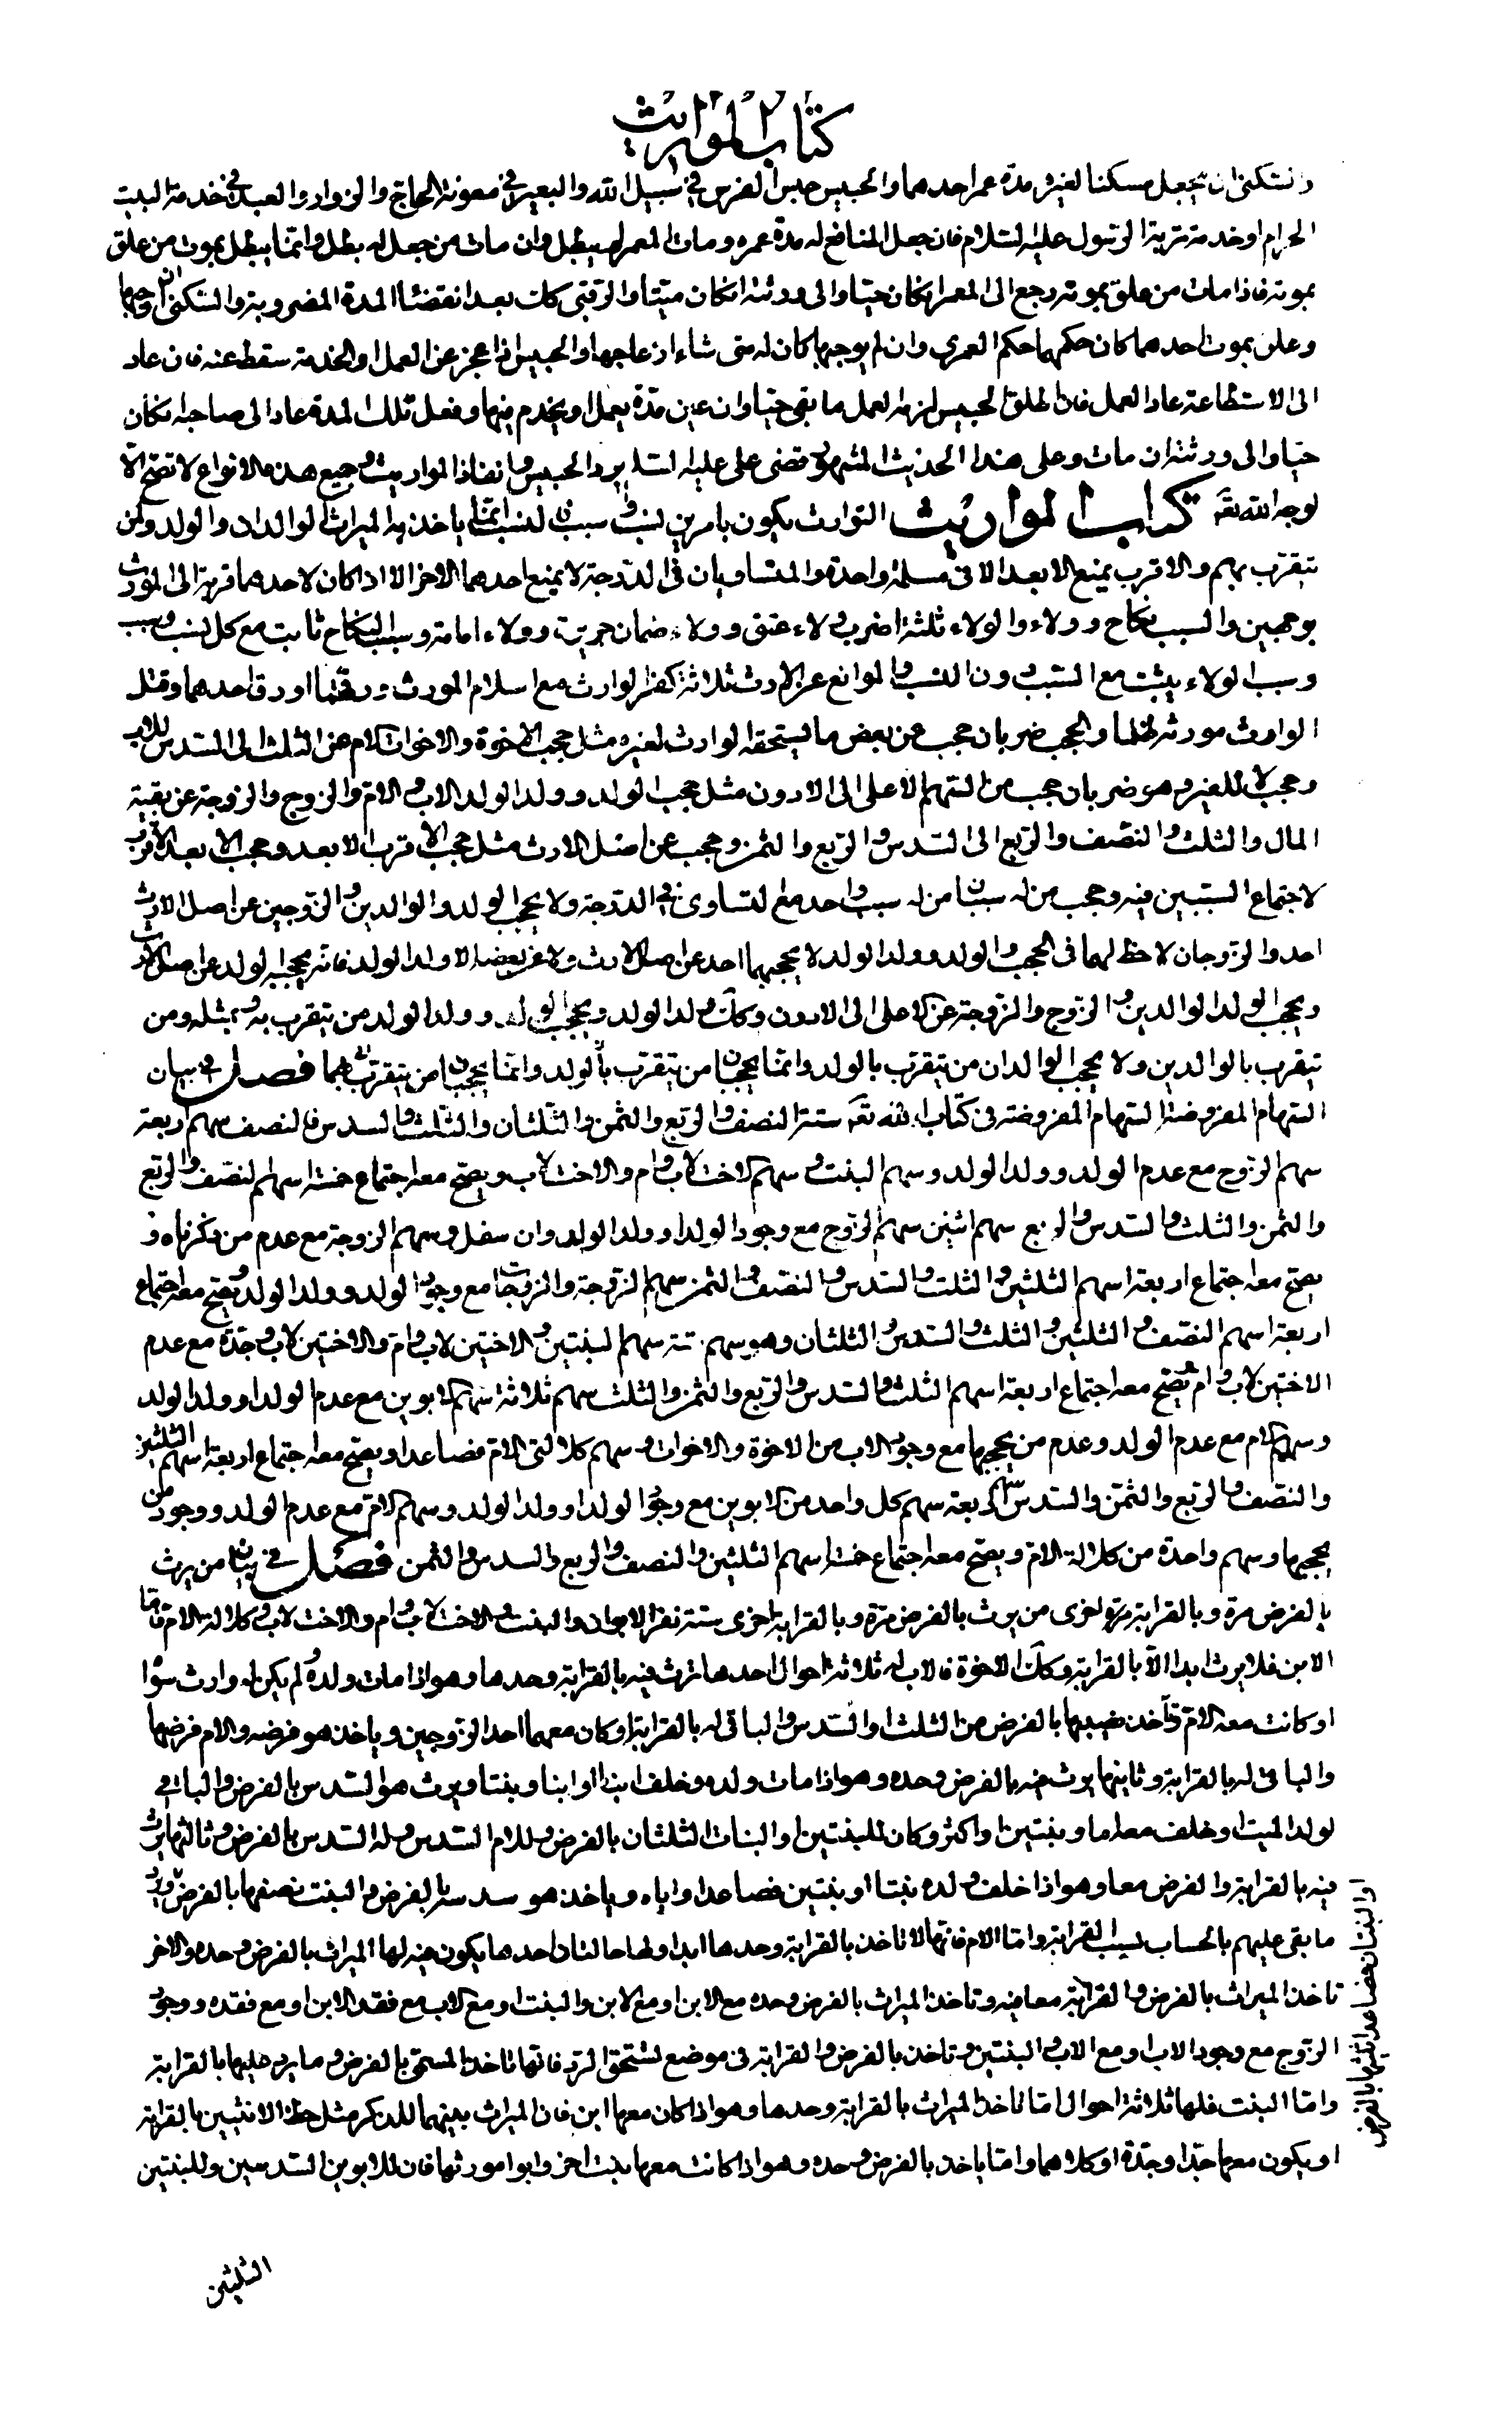 كتاب المواريث
والسكنى ان يجعل مسكنا لغيره مدة عمر احدهما والحبيس حبس الفرس في سبيل الله والبعير في معونة الحاج والزوار والعبد في خدمة البيت
الحرام او خدمة تربة الرسول عليه السلام فان جعل المنافع له مدة عمره ومات المعمر له بطل وان مات من جعل له بطل وانما يبطل بموت من علق
بموته فاذا مات من علق بموته رجع الى المعمر ان كان حيا والى ورثته ان كان ميتا والرقبى كان بعد انقضاء المدة المضروبة والسكنى ان اوجبها
وعلق بموت احدهما كان حكمها حكم العمرى وان لم يوجبها كان له متى شاء ازعاجها والحبيس اذا عجز عن العمل والخدمة سقط عنه فان عاد
الى الاستطاعة عاد العمل فان اطلق الحبيس لزمه العمل ما بقى حيا وان عين مدة يعمل او يخدم فيها وفعل تلك المدة عاد الى صاحبه ان كان
حيا والى ورثته ان مات وعلى هذا الحديث المشهور قضى على عليه السلام برد الحبيس وانفاذ المواريث وجميع هذه الانواع لا تصح الا
لوجه الله تعٰ كتاب المواريث التوارث يكون بامرين نسب وسبب فالنسب انما ياخذ به الميراث الوالدان والولد ومن
يتقرب بهم والاقرب يمنع الابعد الا في مسئلة واحدة والمتساويان في الدرجة لا يمنع احدهما الاخر الا اذا كان لاحدهما قربة الى المورث
بوجهين والسبب نكاح وولاء والولاء ثلثة اضرب ولاء عتق وولاء ضمان جريرة وولاء امامة وسبب النكاح ثابت مع كل نسب وسبب
وسبب الولاء يثبت مع السبب دون النسب والموانع عن الارث ثلاثة كفر الوارث مع اسلام المورث ورقهما او رق احدهما وقتل
الوارث مورثه ظلما والحجب ضربان حجب عن بعض ما يستحقه الوارث لغيره مثل حجب الاخوة والاخوات الام عن الثلث الى السدس للاب
وحجب لا للغير وهو ضربان حجب من السهم الاعلى الى الادون مثل حجب الولد وولد الولد الاب والام والزوج والزوجة عن بقية
المال والثلث والنصف والربع الى السدس والربع والثمن وحجب عن اصل الارث مثل حجب الاقرب الابعد وحجب الابعد الاقرب
لاجتماع السببين فيه وحجب من له سببان من له سبب واحد مع التساوى في الدرجة ولا يحجب الولد والوالدين والزوجين عن اصل الارث
احد والزوجان لاحظ لهما في الحجب والولد وولد الولد لا يحجبهما احد عن اصل الارث ولا عن بعضه الا ولد الولد فانه يحجبه الولد عن اصل الارث
ويحجب الولد الوالدين والزوج والزوجة عن الاعلى الى الادون وكك ولد الولد ويحجب الولد وولد الولد من يتقرب به وبمثله ومن
يتقرب بالوالدين ولا يحجب الوالدان من يتقرب بالولد وانما يحجبان من يتقرب بالولد وانما يحجبان من يتقرب بهما فصل في بيان
السهام المفروضة السهام المفروضة في كتاب الله تعٰ ستة النصف والربع والثمن والثلثان والثلث والسدس فالنصف سهم اربعة
سهم الزوج مع عدم الولد وولد الولد وسهم البنت وسهم الاخت لاب وام والاخت لاب ويصح معه اجتماع خمسة اسهم النصف والربع
والثمن والثلث والسدس والربع سهم اثنين سهم الزوج مع وجود الولد او ولد الولد وان سفل وسهم الزوجة مع عدم من ذكرناه و
يصح معه اجتماع اربعة اسهم الثلثين والثلث والسدس والنصف والثمن سهم الزوجة والزوجات مع وجود الولد وولد الولد ويصح معه اجتماع
اربعة اسهم النصف والثلثين والثلث والسدس والثلثان وهو سهم ستة سهم البنتين والاختين لاب وام والاختين لاب وجدة مع عدم
الاختين لاب وام ويصح معه اجتماع اربعة اسهم الثلث والسدس والربع والثمن والثلث سهم ثلاثة سهم الابوين مع عدم الولد وولد الولد
وسهم الام مع عدم الولد وعدم من يحجبها مع وجود الاب من الاخوة والاخوات وسهم كلالتى الام فصاعدا ويصح معه اجتماع اربعة اسهم الثلثين
والنصف والربع والثمن والسدس سهم اربعة سهم كل واحد من الابوين مع وجود الولد او ولد الولد وسهم الام مع عدم الولد ووجود من
يحجبها وسهم واحدة من كلالة الام ويصح معه اجتماع خمسة اسهم الثلثين والنصف والربع والسدس والثمن فصل في بيان من يرث
بالفرض مرة وبالقرابة مرة اخرى من يرث بالفرض مرة وبالقرابة اخرى ستة نفر الابوان والبنت والاخت لاب وام والاخت لاب وكلالة الام فاما
الابن فلا يرث ابدا الا بالقرابة وكك الاخوة فالاب له ثلاثة احوال احدها يرث فيه بالقرابة وحدها وهو اذا مات ولده ولم يكن له وارث سواه
او كانت معه الام فتاخذ نصيبها بالفرض من الثلث او السدس والباقى له بالقرابة او كان معهما احد الزوجين وياخذ هو فرضه والام فرضها
والباقى له بالقرابة وثانيها يرث فيه بالفرض وحده وهو اذا مات ولده وخلف ابنا او ابنا وبنتا ويرث هو السدس بالفرض والباقى
لولد الميت او خلف معه اما وبنتين او اكثر وكان للبنتين او البنات الثلثان بالفرض وللام السدس وله السدس بالفرض وثالثها يرث
فيه بالقرابة والفرض معا وهو اذا خلف ولده بنتا او بنتين فصاعدا واياه وياخذ هو سدسه بالفرض والبنت نصفها بالفرض ويرد
او البنتان فصاعدا ثلثيها بالفرض
ما بقى عليهم بالحساب لسبب القرابة واما الام فانها لا تاخذ بالقرابة وحدها ابدا ولها حالتان احدهما يكون فيه لها الميراث بالفرض وحده والاخر
تاخذ الميراث بالفرض والقرابة معا فيه وتاخذ الميراث بالفرض وحده مع الابن او مع الابن والبنت او مع الاب مع فقد الابن او مع فقده ووجود
الزوج مع وجود الاب او مع الاب والبنتين وتاخذ بالفرض والقرابة في موضع تستحق الرد فانها تاخذ المسمى بالفرض وما يرد عليها بالقرابة
واما البنت فلها ثلاثة احوال اما تاخذ الميراث بالقرابة وحدها وهو اذا كان معها ابن فان الميراث بينهما للذكر مثل حظ الانثيين بالقرابة
او يكون معها جدا وجدة او كلاهما واما ياخذ بالفرض وحده وهو اذا كانت معها بنت اخرى وابوا مورثها فان للابوين السدسين وللبنتين
الثلثين